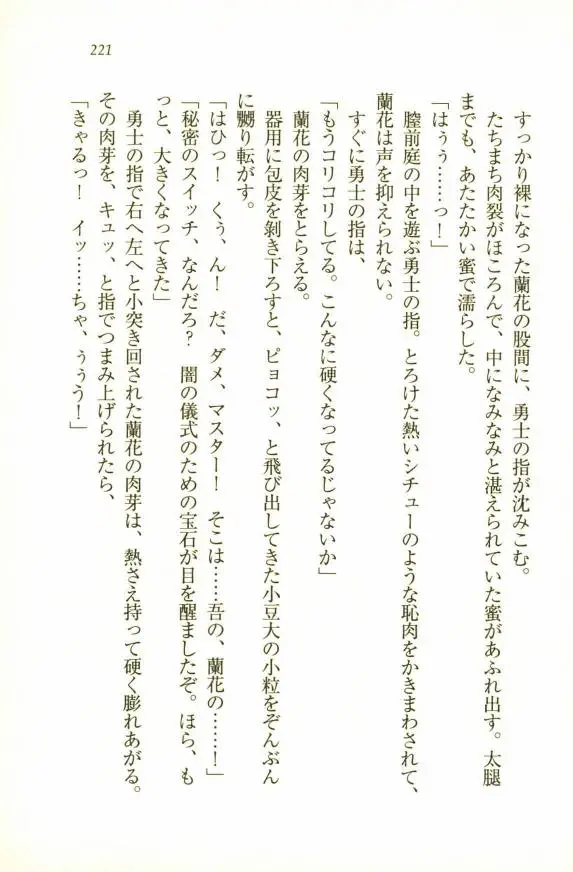 221
すっかり裸になった蘭花の股間に、勇士の指が沈みこむ。
たちまち肉裂がほころんで、中になみなみと湛えられていた蜜があふれ出す。太腿
までも、あたたかい蜜で濡らした。
「はぅぅ……っ！」
膣前庭の中を遊ぶ勇士の指。とろけた熱いシチューのような恥肉をかきまわされて、
蘭花は声を抑えられない。
すぐに勇士の指は、
「もうコリコリしてる。こんなに硬くなってるじゃないか」
蘭花の肉芽をとらえる。
器用に包皮を剝き下ろすと、ピョコッ、と飛び出してきた小豆大の小粒をぞんぶん
に嬲り転がす。
「はひっ！　くぅ、ん！　だ、ダメ、マスター！　そこは……吾の、蘭花の……！」
「秘密のスイッチ、なんだろ？　闇の儀式のための宝石が目を醒ましたぞ。ほら、も
っと、大きくなってきた」
勇士の指で右へ左へと小突き回された蘭花の肉芽は、熱さえ持って硬く膨れあがる。
その肉芽を、キュッ、と指でつまみ上げられたら、
「きゃるっ！　イッ……ちゃ、ぅぅう！」